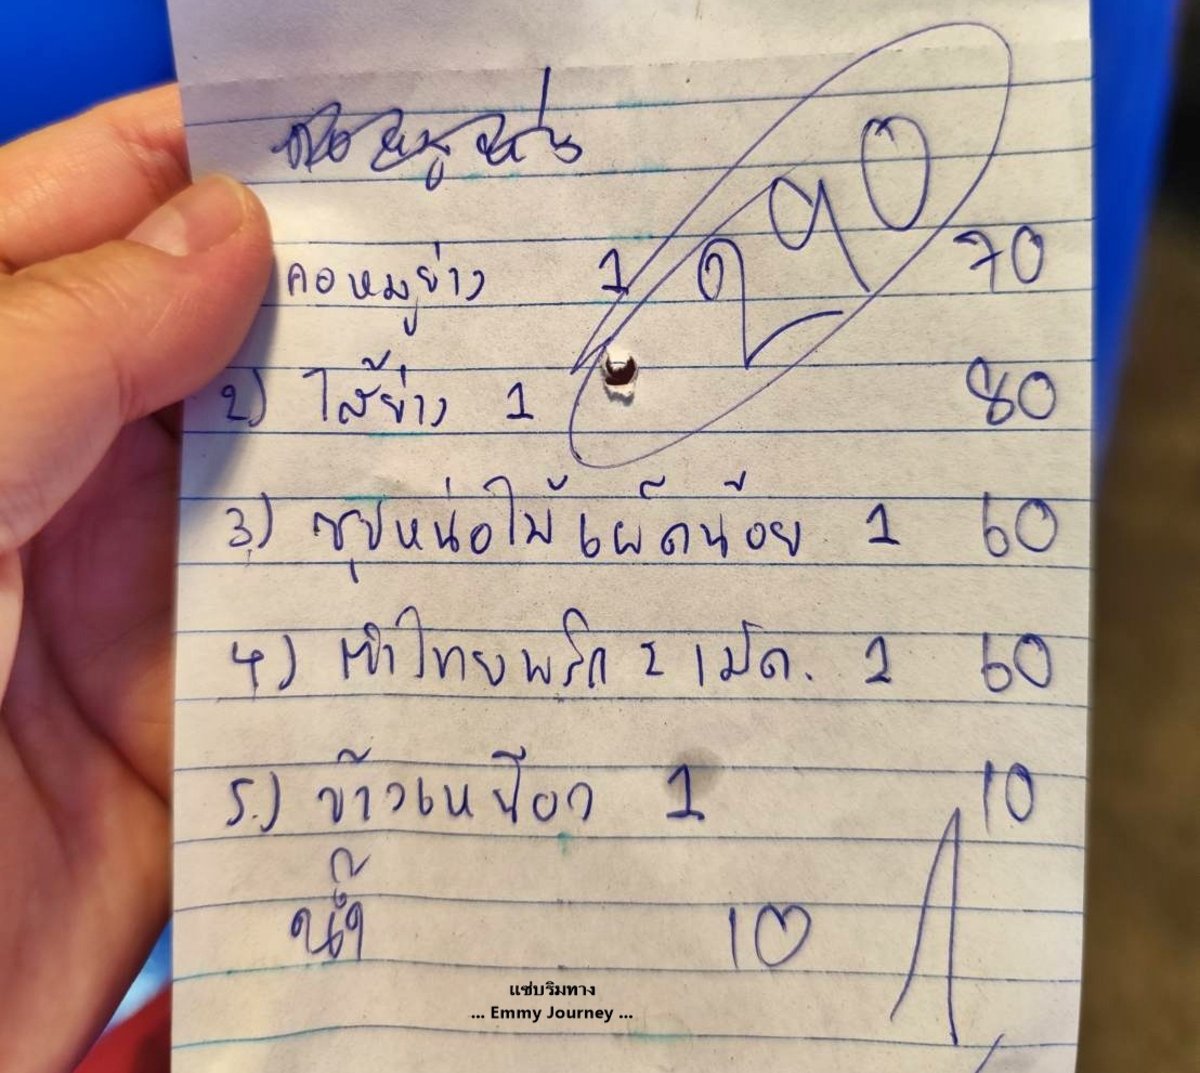 290
คอหมูย่าง 1 70
2) ไส้ย่าง 1 80
3) ซุปหน่อไม้เผ็ดน้อย 1 60
4) ตำไทยพริก 2 เม็ด. 1 60
5.) ข้าวเหนียว 1 10
น้ำ 10
แซ่บริมทาง
... Emmy Journey ...